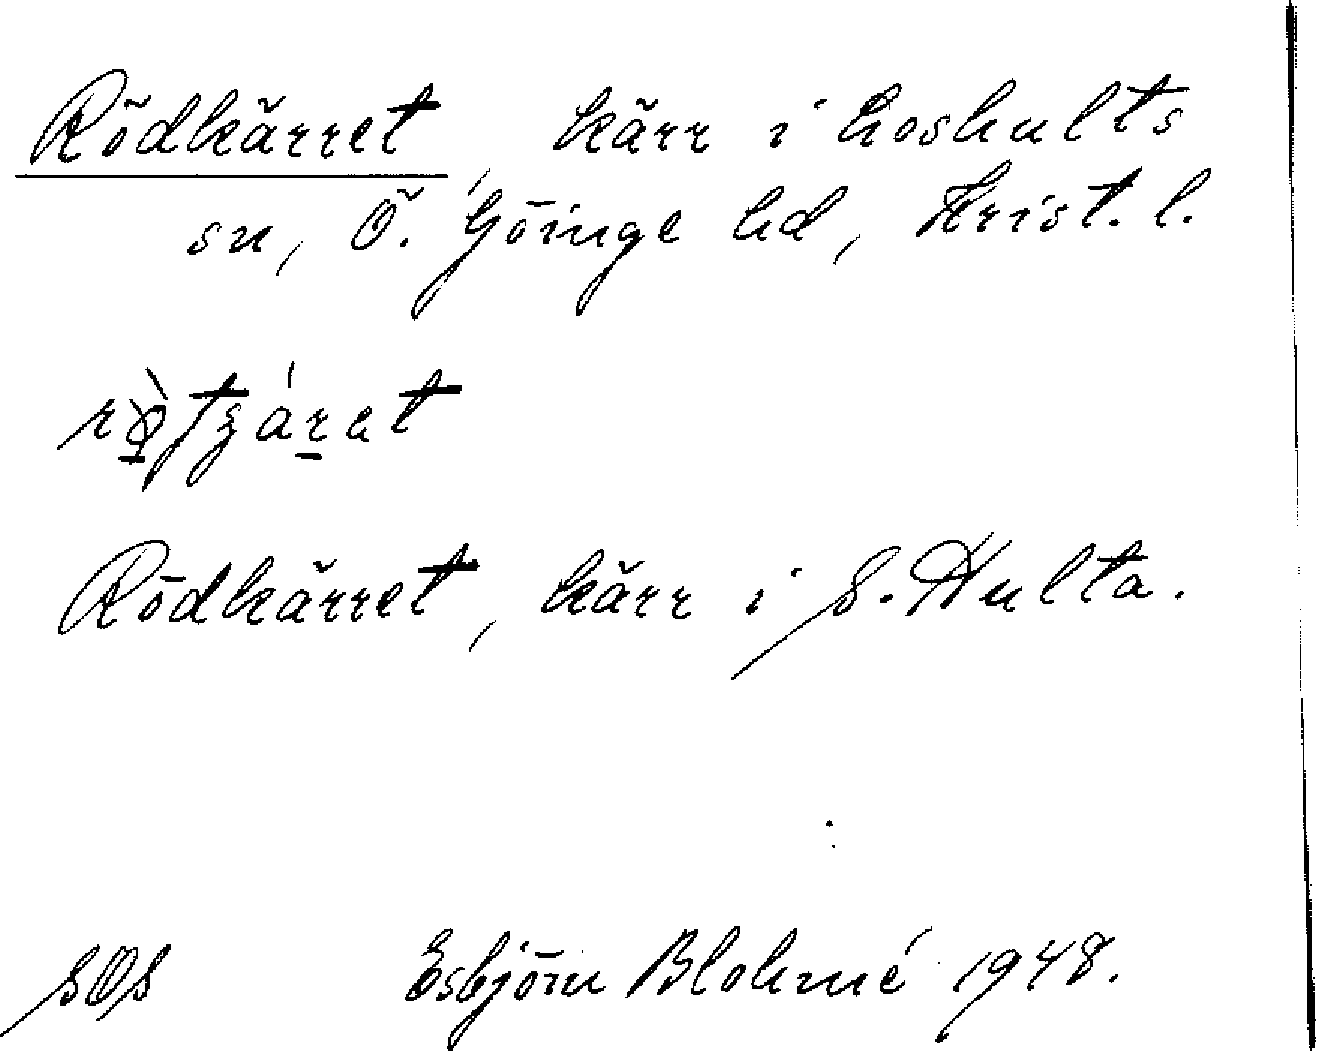 Rödkärret, kärr i Loshults
sn, Ö. Göinge hd, Krist. l.
Rödkärret, kärr i S. Hulta.
SOS Esbjörn Blohmé 1948.